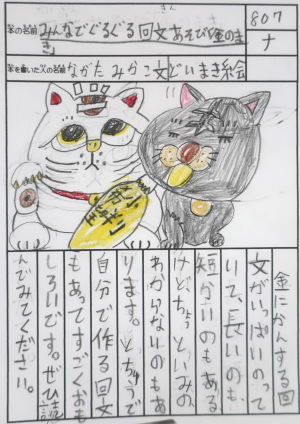 きん
本の名前 みんなでぐるぐる回文あそび 金のま
き
807
ナ
本を書いた人の名前 ながた みかこ 文 どいまき 絵
金にかんする回
文がいっぱいのって
いて、長いのも、
短かいのもある
けど、ちょっといみの
わからないのもあ
ります。とちゅうで
自分で作る回文
もあってすごくおも
しろいです。ぜひ読
んでみてください。